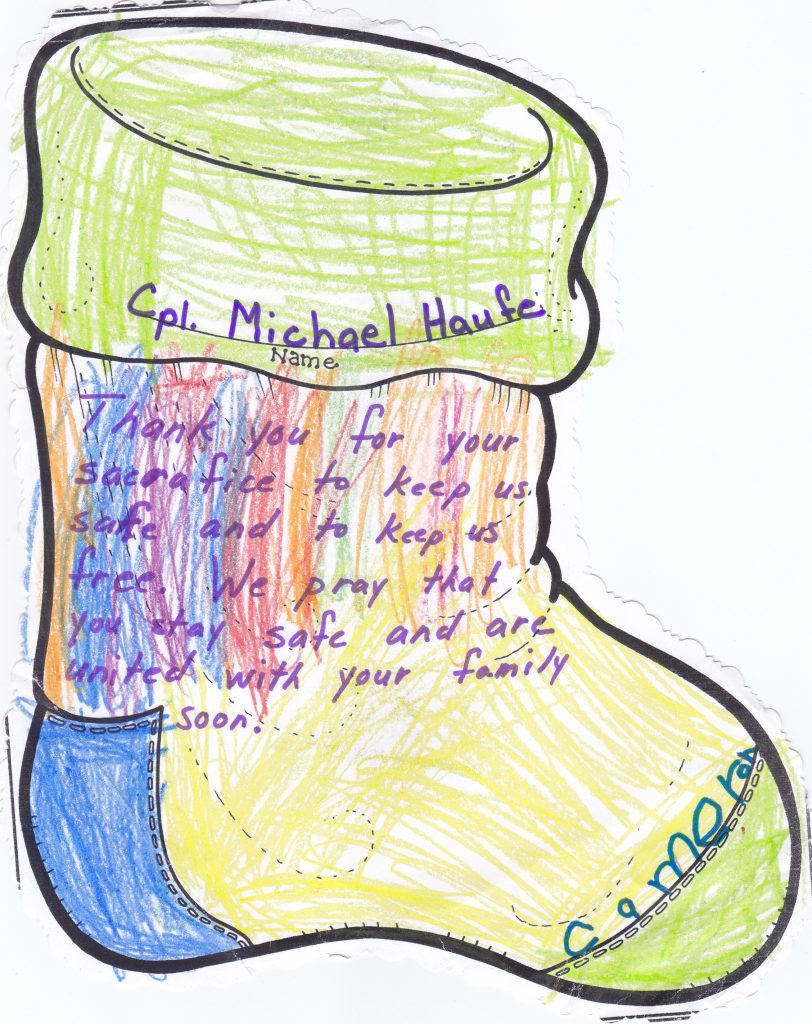 Cpl. Michael Haufe
Name
Thank you for your
sacrafice to keep us
safe and to keep us
free. We pray that
you stay safe and are
united with your family
soon.